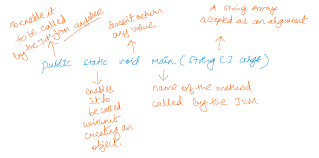 to enable it
to be called
by the JVM from anywhere
doesn't return
any value
A String Array
accepted as an argument
public static void main (String [] args)
enables
it to
be called
without
creating an
object.
name of the method
called by the JVM